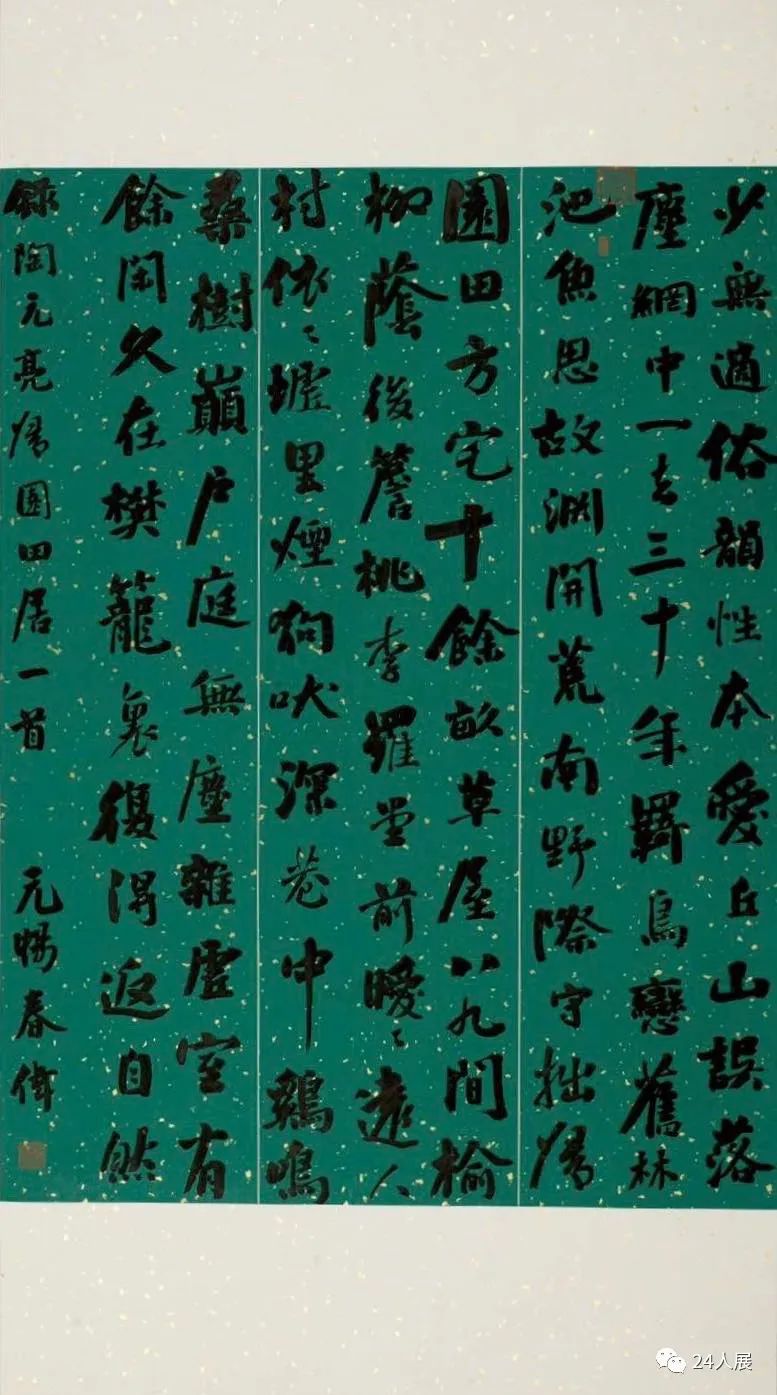 少無適俗韻性本愛丘山誤落
塵網中一去三十年羈鳥戀舊林
池魚思故淵開荒南野際守拙歸
園田方宅十餘畝草屋八九間榆
柳蔭後簷桃李羅堂前曖〻遠人
村依〻墟里煙狗吠深巷中鷄鳴
桑樹巔戶庭無塵雜虛室有
餘閑久在樊籠裏復得返自然
錄陶元亮歸園田居一首 元暢春偉
24人展